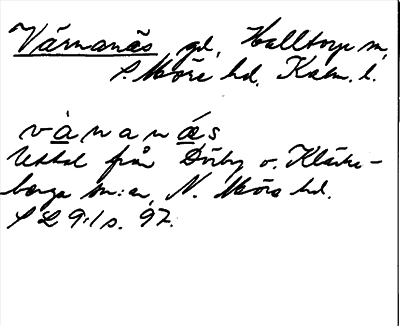 Värnanäs gd, Halltorps sn,
S Möre hd. Kalm. l.
vànanǽs
Uttal från Dörby o. Kläcke-
berga sn:ar, N. Möre hd.
SL 9:1 s. 97.